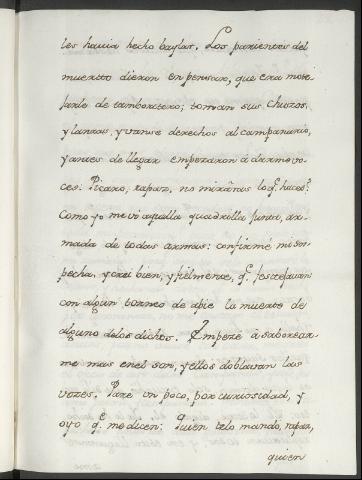 les havia hecho baylar. Los parientes del
muerto dieron en pensar, que era mote-
jarle de tamborilero; toman sus chuzos,
y lanzas, y vanse derechos al campanario,
y antes de llegar empezaron à darme vo-
ces: Picaro, rapaz, no miràras lo q.e haces?
Como yo me vi aquella quadrilla junta, ar-
mada de todas armas: confirmé mi sos-
pecha, y crei bien, y fielmente, q.e festejavan
con algun torneo de apie la muerte de
alguno de los dichos. Empezé à saborear-
me mas en el son, y ellos doblavan las
vozes. Paré un poco, por curiosidad, y
oyo q.e me dicen: Quien te lo mandó, rapaz,
quien